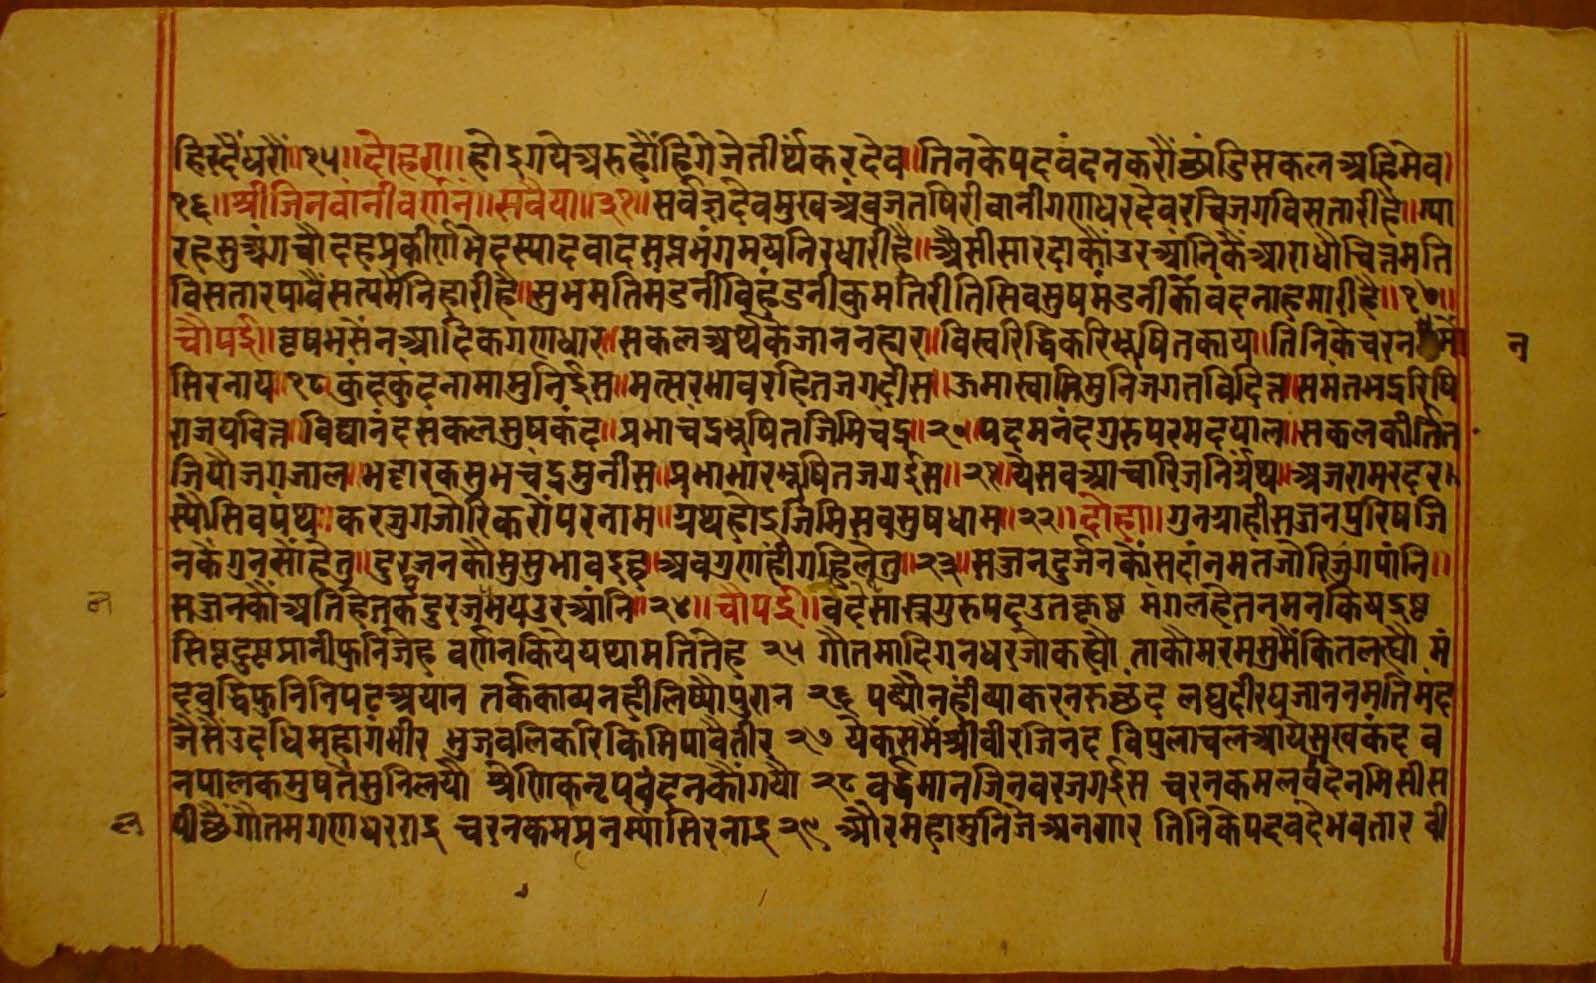 हिरदैंधरौं॥१५॥दोहरा॥होइगयेअरुहौंहिगेजेतीर्थंकरदेव॥तिनकेपदवंदनकरौंछांडिसकलअहिमेव।
१६॥श्रीजिनवांनीवर्णनं॥सवैया॥३१॥सर्वज्ञदेवमुखअंबुजतषिरीवानीगणधरदेवरचिजगविसतारीहै॥ग्या
रहसुअंगचौदहप्रकीर्णभेदस्यादवादसप्तभंगमयनिरधारीहै॥अैसीसारदाकौंउरआंनिकैआराधौचित्तमति
विसतारपावैंसत्यमैंनिहारीहै॥सुभमतिमंडनीविहंडनीकुमतिरीतिसिवसुषमंडनीकौंवंदनाहमारीहै॥१७॥
चौपई॥वृषभसैनआदिकगणधार॥सकलअर्थकेजाननहार॥विस्वरिद्धिकरिभूषितकाय॥तिनिकेचरन
सिरनाय॥१८॥कुंदकुंदनामामुनिईस॥मत्सरभावरहितजगदीस॥ऊमास्वामिमुनिजगतविदित्त॥समंतभद्ररिषि
राजपवित्त॥विद्यानंदसकलसुषकंद॥प्रभाचंद्रभूषितजिमिचंद्र॥२०॥पदमनंदगुरुपरमदयाल॥सकलकीर्तिति
जियौजगजाल॥भट्टारकसुभचंद्रमुनीस॥प्रभाभारभूषितजगईस॥२१॥येसवआचारिजनिर्ग्रंथ॥अजरामरदर
स्यौसिवपंथ॥करजुगजोरिकरौंपरनाम॥ग्रथहोइजिमिसवसुषधाम॥२२॥दोहा॥गुनग्राहीसजनपुरिषजि
नकेगुनसौंहेतु॥दुरजनकौसुसुभावइह॥अवगुणहीगहिलेतु॥२३॥सजनदुर्जनकौंसदांनमतजोरिजुगपांनि॥
सजनकौंअतिहेतकैंदुरजभयउरआंनि॥२४॥चौपई॥वंदेसास्त्रगुरुपदउतकृष्ट मंगलहेतनमनकियइष्ट
सिष्टदुष्टप्रानीफुनिजेह वर्णनकियेयथामतितेह २५ गौतमादिगनधरजोकह्यौ ताकौमरमसुमैंकितलह्यौ मं
दवुद्धिफुनिनिपटअयान तर्ककाव्यनहीलिष्यौपुरान २६ पढ्यौनहीव्याकरनरुछंद लघुदीरघजाननमतिमंद
जैसेंउदधिमहागंभीर भुजवलिकरिकिमिपावैतीर २७ येकसमैंश्रीवीरजिनंद विपुलाचलआयेसुखकंद व
नपालकमुषतैंसुनिलयौ श्रेणिकनृपवंदनकौंगयौ २८ वर्द्धमानजिनवरजगईस चरनकमलवंदेनमिसीस
पीछैंगौतमगणधरराइ चरनकमप्रनम्यासिरनाइ २९ औरमहामुनिजेअनगार तिनिकेपदवंदेभवतार वी
न
ल
ल